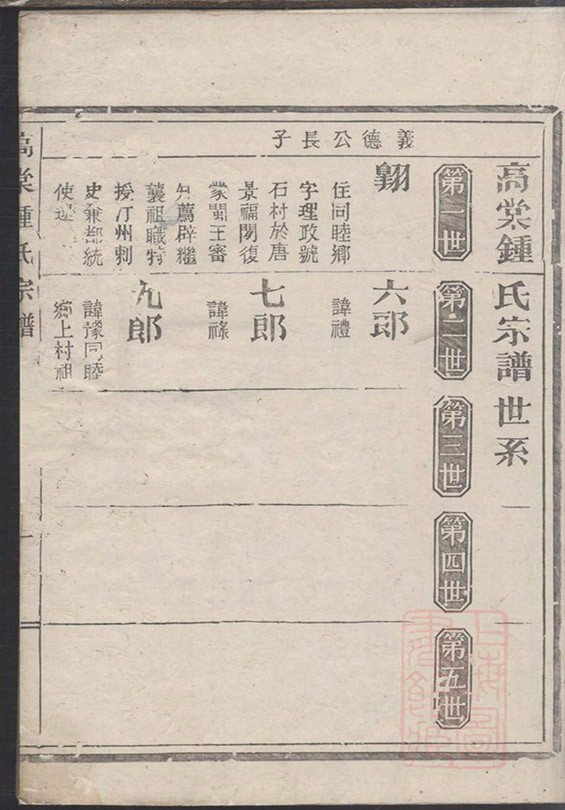 高棠鍾氏宗譜世系
第一世
第二世
第三世
第四世
第五世
義德公長子
翱
住同睦鄉
字理政號
石村於唐
景福間復
蒙閩王審
知薦辟繼
襲祖職特
授汀州刺
史兼都統
使
六郎
諱禮
七郎
諱祿
九郎
諱豫同睦
鄉上村祖
高棠鍾氏宗譜